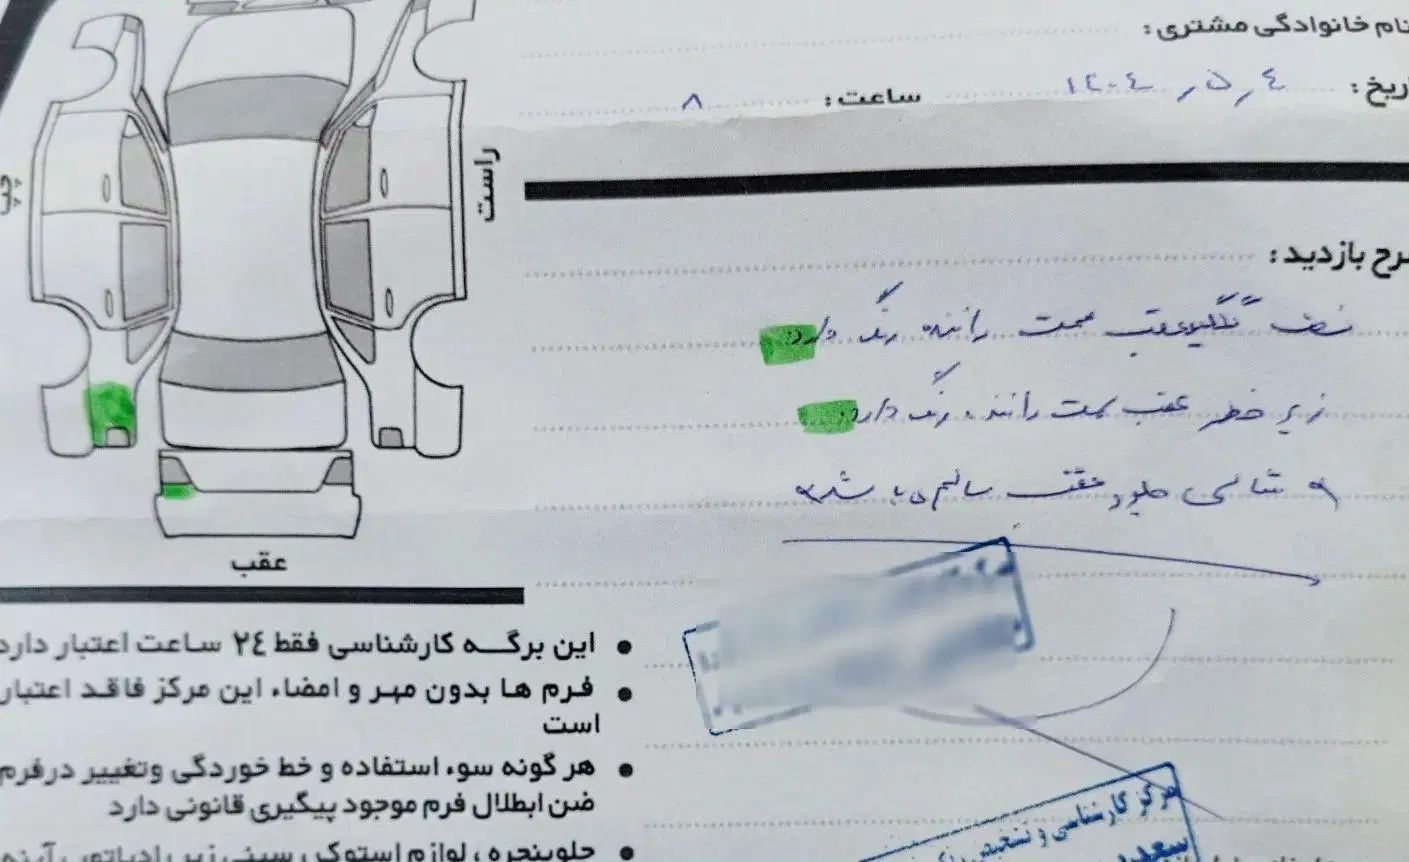 نام خانوادگی مشتری :
تاریخ : ١٤٠٤ ر ٥ ر ٤ ساعت : ٨
راست
چپ
شرح بازدید :
نصف گلگیر عقب سمت راننده رنگ دارد
زیر خطر عقب سمت راننده رنگ دارد
شاسی جلو و عقب سالم می باشد
عقب
این برگه کارشناسی فقط ٢٤ ساعت اعتبار دارد
فرم ها بدون مهر و امضاء این مرکز فاقد اعتبار
است
هر گونه سوء استفاده و خط خوردگی وتغییر درفرم
ضن ابطلال فرم موجود پیگیری قانونی دارد
جلوپنجره ، لوازم استوک ، سینی زیر رادیاتور ، آینه
مرکز کارشناسی و تشخیص رنگ
سعید